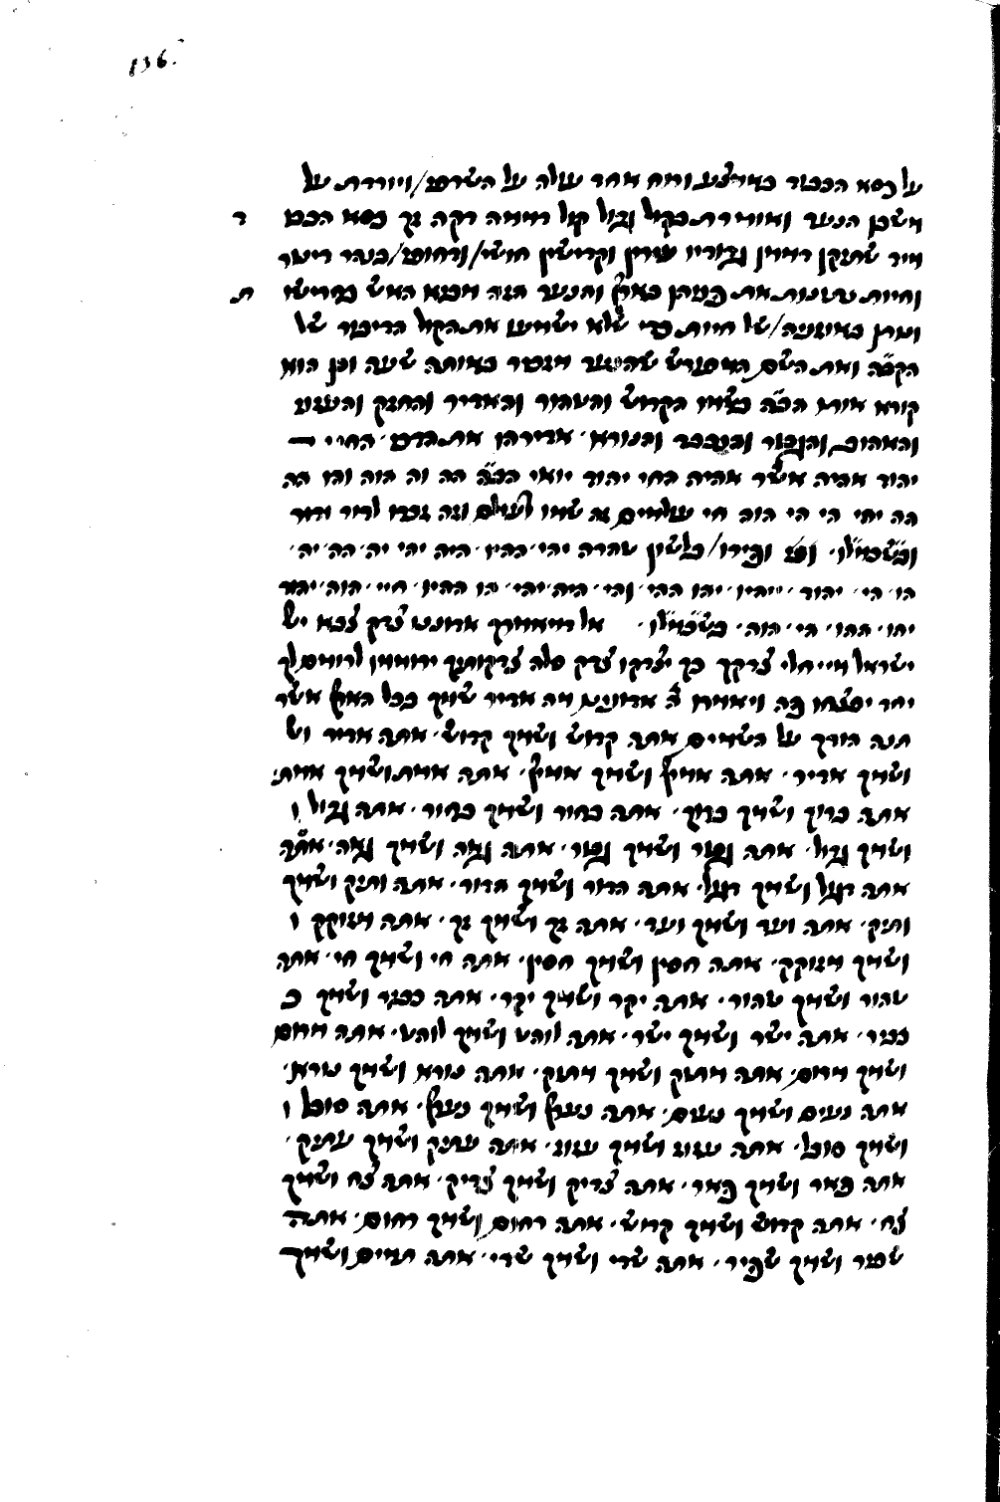 136.
על כסא הכבוד באמצע ורוח אחד עולה על השרפי/ ויורדת על
משכן הנער ואומרת בקול גדול קול דממה דקה זך כסא הכבו ד
מיד שתקן דממין גבוריו עירין וקדישין חושי/ ודחופי/ בנהר דינור
וחיות נותנות את פניהן בארץ והנער הזה מביא האש חרישי ת
ונותן באזניה/ של חיות כדי שלא ישמעו את הקול הדיבור של
הקבה ואת השם המפורש שהנער מזכיר באותה שעה וכן הוא
קורא אותו הבה בשמו הקדוש והטהור והאדיר והחזק והעזוז
והאהוב והגבור והנכבד והנורא אדירהו אתהדם החיי
יהוד אהיה אשר אהיה החי יהוד יואי הבה הה וה הוה והו הה
הה יהי הי הי הוה חי עולמים זה שמו לעולם וזה זכרו לדור ודור
ובשכמלו וכו וכירו/ בלשון טהרה יהי ההיו היה יהי יה הה יה
הו הי יהוד ייהיו יהו ההי והי היה יהי הו ההיו חיי הוה יהוד
יהו ההו הי הוה בשכמלו אל
ישראל מייחלי צדקך כך יצדקו צדק סלה צדקותך ירוממו לרומם לך
יחד יפצחו פה ויאמרו יי אדונינו מה אדיר שמך בכל הארץ אשר
תנה הודך על השמים אתה קדוש ושמך קדוש אתה אדיר וש
ושמך אדיר אתה אמיץ ושמך אמיץ אתה אמת ושמך אמת
אתה ברוך ושמך ברוך אתה בחור ושמך בחור אתה גדול ו
ושמך גדול אתה גבור ושמך גבור אתה גאה ושמך גאה אתה
אתה דגול ושמך דגול אתה הדור ושמך הדור אתה ותיק ושמך
ותיק אתה ועד ושמך ועד אתה זך ושמך זך אתה מזוקק ו
ושמך מזוקק אתה חסין ושמך חסין אתה חי ושמך חי אתה
טהור ושמך טהור אתה יקר ושמך יקר אתה כביר ושמך כ
כביר אתה ישר ושמך ישר אתה לוהט ושמך לוהט אתה מרום
ושמך מרום אתה מתוק ושמך מתוק אתה נורא ושמך נורא
אתה נעים ושמך נעים אתה נערץ ושמך נערץ אתה סובל ו
ושמך סובל אתה עזוז ושמך עזוז אתה עתיק ושמך עתיק
אתה פאר ושמך פאר אתה צדיק ושמך צדיק אתה צח ושמך
צח אתה קדוש ושמך קדוש אתה רחום ושמך רחום אתה
שפיר ושמך שפיר אתה שדי ושמך שדי אתה תמים ושמך